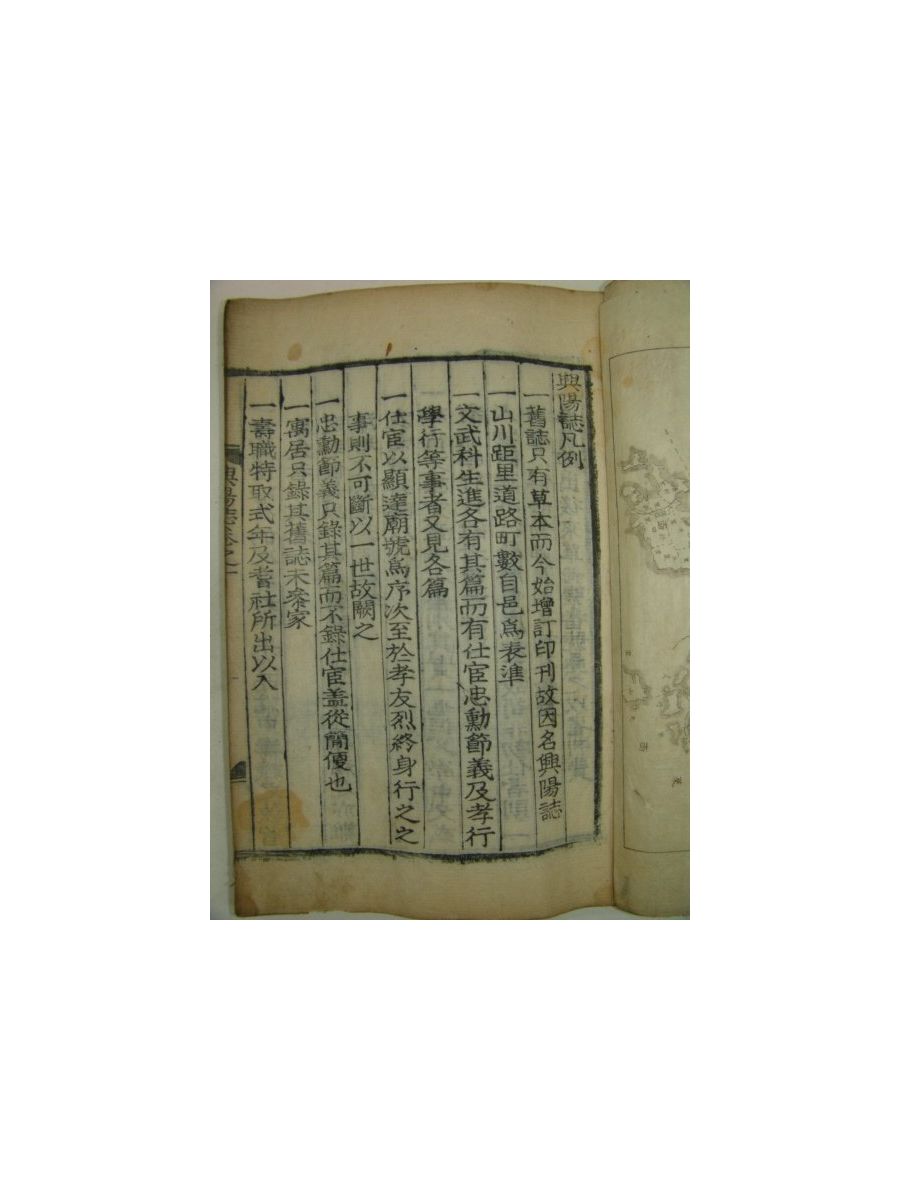 興陽誌凡例
一舊誌只有草本而今始增訂印刊故因名興陽誌
一山川距里道路町數自邑爲表準
一文武科生進各有其篇而有仕宦忠勳節義及孝行
學行等事者又見各篇
一仕宦以顯達廟號爲序次至於孝友烈終身行之之
事則不可斷以一世故闕之
一忠勳節義只錄其篇而不錄仕宦盖從簡便也
一寓居只錄其舊誌未叅家
一壽職特取式年及耆社所出以入
興陽誌卷之一